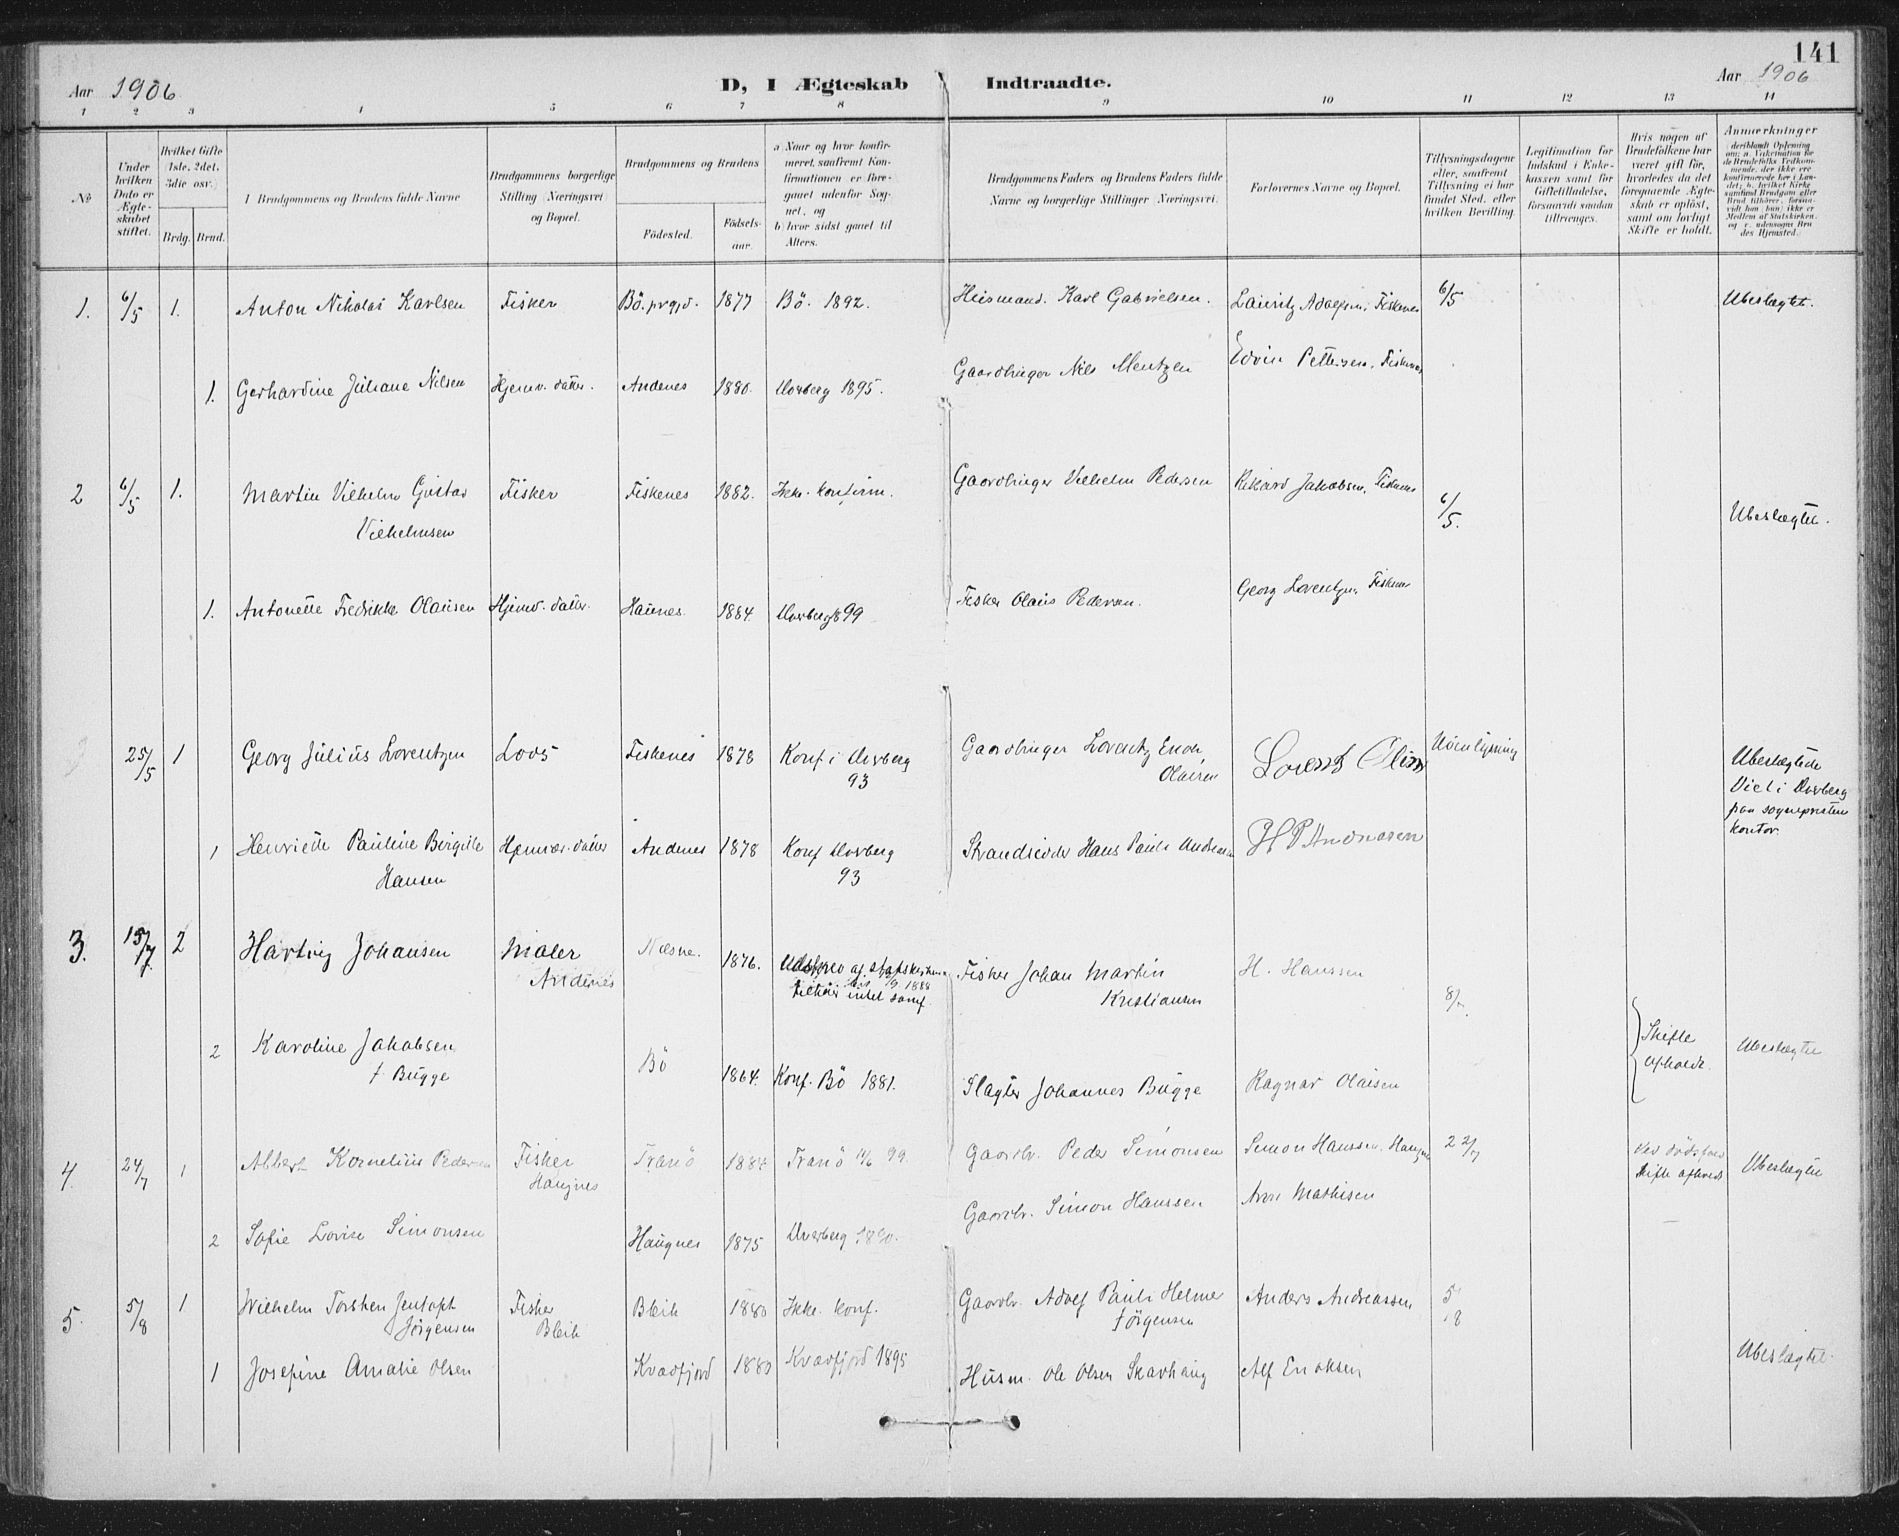 141
Aar 1906
D, I Ægteskab Indtraadte.
Aar 1906
1 2 3 4 5 6 7 8 9 10 11 12 13 14
No
Under
hvilken
Dato er
Ægte-
skabet
stiftet.
Hvilket Gifte
(1ste, 2det,
3die osv.)
Brdg. Brud.
Brudgommens og Brudens fulde Navne
Brudgommens borgerlige
Stilling (Næringsvei)
og Bopæl.
Brudgommens og Brudens
Födested.
Födsels-
aar.
a Naar og hvor konfir-
meret, saafremt Kon-
firmationen er fore-
gaaet udenfor Sog-
net, og
b) hvor sidst gaaet til
Alters.
Brudgommens Faders og Brudens Faders fulde
Navne og borgerlige Stillinger (Næringsvei.
Forlovernes Navne og Bopæl.
Tillysningsdagene
eller, saafremt
Tillysning ei har
fundet Sted, efter
hvilken Bevilling.
Legitimation for
Indskud i Enke-
kassen samt for
Giftetilladelse,
forsaavidt saadan
tiltrænges.
Hvis nogen af
Brudefolkene har
været gift för,
hvorledes da det
foregaaende Ægte-
skab er oplöst,
samt om lovligt
Skifte er holdt.
Anmærkninger
(deriblandt Oplysning
om: a. Vakcination for
de Brudefolks Vedkom-
mende, der ikke ere
konfirmerede her i Lan-
det; b. hvilket Kirke-
samfund Brudgom eller
Brud tilhører, forsaa-
vidt han (hun) ikke er
Medlem af Statskirken.
og c. udensogns Bru-
des Hjemsted.)
1. 6/5 1. Anton Nikolai Karlsen Fisker Bö. prgjd. 1877 Bö. 1892. Husmand. Karl Gabrielsen. Lauritz Adolfsen, Fiskenes 6/5 Ubeslægtet.
1. Gerhardine Juliane Nilsen Hjemv. datter. Andenes 1880. Dverberg 1895. Gaardbruger Nils Mentzen Edvin Pettersen, Fiskenes
2 6/5 1. Martin Vilhelm Gustav Fisker Fiskenes 1882. Ikke. konfirm. Gaardbruger Vilhelm Pedersen Rikard Jakobsen, Fiskenes 6/5. Ubeslægtet.
Vilhelmsen
1. Antonette Fredrikke Olausen Hjemv. datter. Haunes 1884 Dverberg 99 Fisker Olaus Pedersen. Georg Lorentzen, Fiskenes
25/5 1 Georg Julius Lorentzen Lods Fiskenes 1878 Konf i Dverberg Gaardbruger Lorentz Enok
93 Olaisen
Ubeslægtede
Viet i Dverberg
paa sogneprestens
kontor.
1 Henriette Pauline Birgitte Hjemv. datter Andenes 1878 Konf Dverberg Strandsidder Hans Pauli Andreasen H P Andreasen
Hansen 93
3. 15/7 2 Hartvig Johansen Maler 1876. Fisker Johan Martin H. Hanssen 8/7.
Andenes Kristiansen
2 Karoline Jakobsen Bö 1864. Konf. Bö 1881. Slagter Johannes Bugge Ragnar Olaisen Skifte Ubeslægtet
f. Bugge afholdt.
4. 24/7 1 Albert Kornelius Pedersen Fisker Tranö 1884 Tranö 99. Gaardbr. Peder Simonsen Simon Hanssen, Haugnes 22/7 Ubeslægtet
Haugnes
2 Sofie Lovise Simonsen Haugnes 1875 Dverberg 1890. Gaardbr. Simon Hanssen Arne Mathisen
5. 5/8 1 Wilhelm Torsten Jentoft Fisker Bleik 1880 Ikke. konf. Gaardbr. Adolf Pauli Helmer Anders Andreassen 5/8
Jörgensen Bleik Jörgensen
1 Josefine Amalie Olsen Kvædfjord 1880 Kvædfjord 1895 Husm. Ole Olsen Skavhaug Alf Enoksen Ubeslægtet.